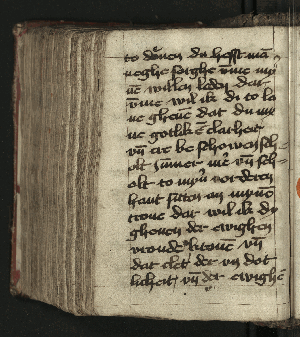 to donen du hefst man
neghe sorghe vm̄e my
nē willen leden dar
vm̄e wil ik di to lo
ne gheuē dat du my
ne gotlikē clarheit
vn̄ ere be schowen sch
olt jummer me vn̄ sch
olt to myn̄ vorderen
hant sitten an myneme
trone dar wil ik dy
gheuen der ewighen
vroude kronen vn̄
dat cleit der vn dot
licheit vn̄ der ewighē